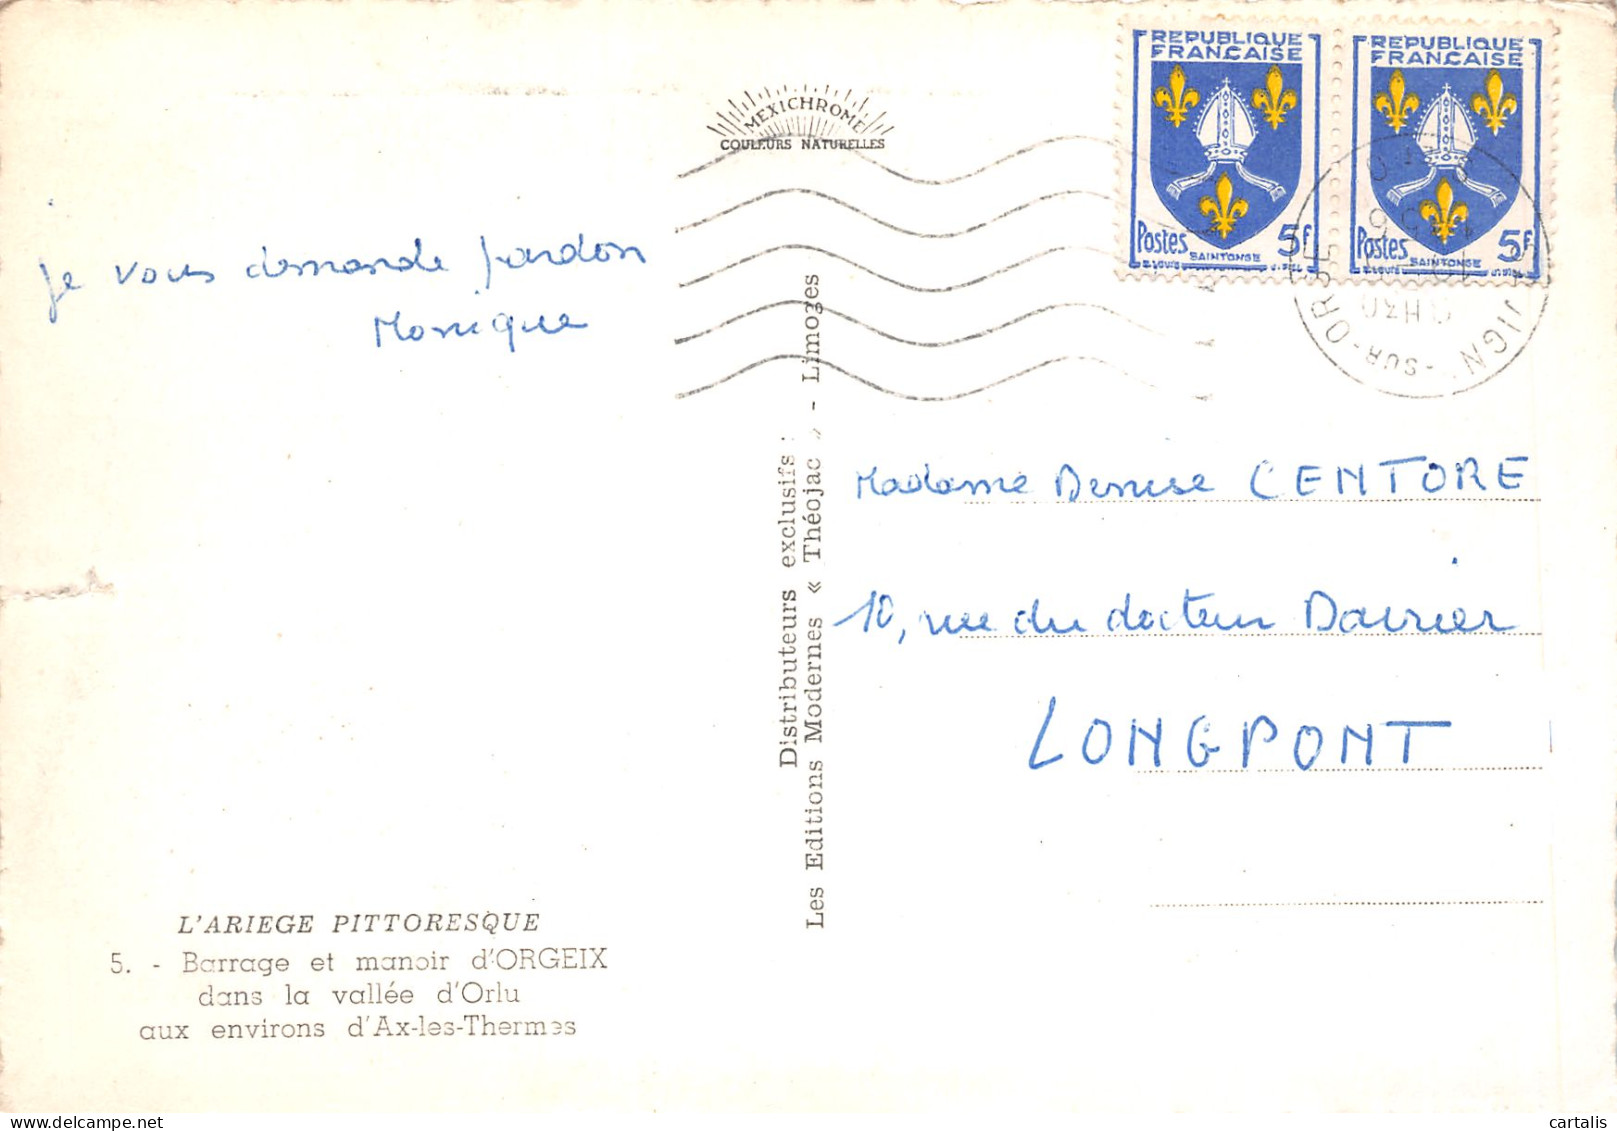 MEXICHROME
COULEURS NATURELLES
REPUBLIQUE
FRANÇAISE
Postes 5F
SAINTONGE
REPUBLIQUE
FRANÇAISE
Postes 5F
SAINTONGE
-SUR-ORGE
je vous demande pardon
Monique
Distributeurs exclusifs :
Les Editions Modernes « Théojac » - Limoges
Madame Denise CENTORE
10, rue du docteur Darrier
LONGPONT
L'ARIEGE PITTORESQUE
5. - Barrage et manoir d'ORGEIX
dans la vallée d'Orlu
aux environs d'Ax-les-Thermes
cartalis